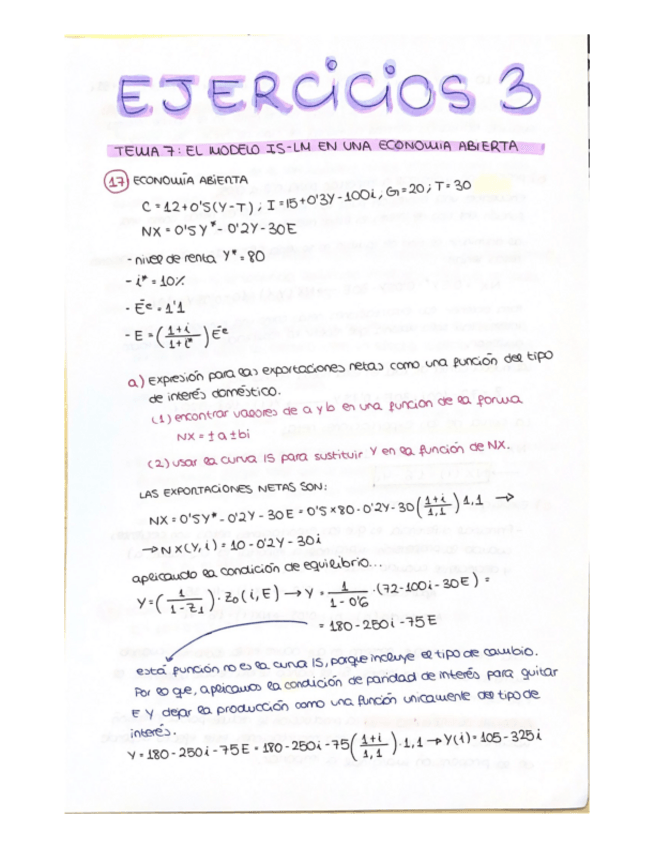 EJERCICIOS 3
TEMA 7: EL MODELO IS-LM EN UNA ECONOMIA ABIERTA
17) ECONOMÍA ABIERTA
C = 12 + 0'5 (Y-T) ; I = 15 + 0'3Y - 100i ; G = 20 ; T = 30
NX = 0'5Y* - 0'2Y - 30E
- nivel de renta Y* = 80
- i* = 10%
- Ēe = 1'1
- E = (1+i / 1+i*) Ēe
a) Expresión para las exportaciones netas como una función del tipo
de interés doméstico.
(1) encontrar valores de a y b en una función de la forma
NX = ± a ± bi
(2) usar la curva IS para sustituir Y en la función de NX.
LAS EXPORTACIONES NETAS SON:
NX = 0'5Y* - 0'2Y - 30E = 0'5 x 80 - 0'2Y - 30 (1+i / 1,1) 1,1 →
→ NX(Y, i) = 10 - 0'2Y - 30i
aplicando la condición de equilibrio...
Y = (1 / 1-Z1) · Z0 (i, E) → Y = 1 / 1-0'6 · (72 - 100i - 30E) =
= 180 - 250i - 75E
esta función no es la curva IS, porque incluye el tipo de cambio.
Por lo que, aplicamos la condición de paridad de interés para quitar
E y dejar la producción como una función unicamente del tipo de
interés.
Y = 180 - 250i - 75E = 180 - 250i - 75 (1+i / 1,1) · 1,1 → Y(i) = 105 - 325i